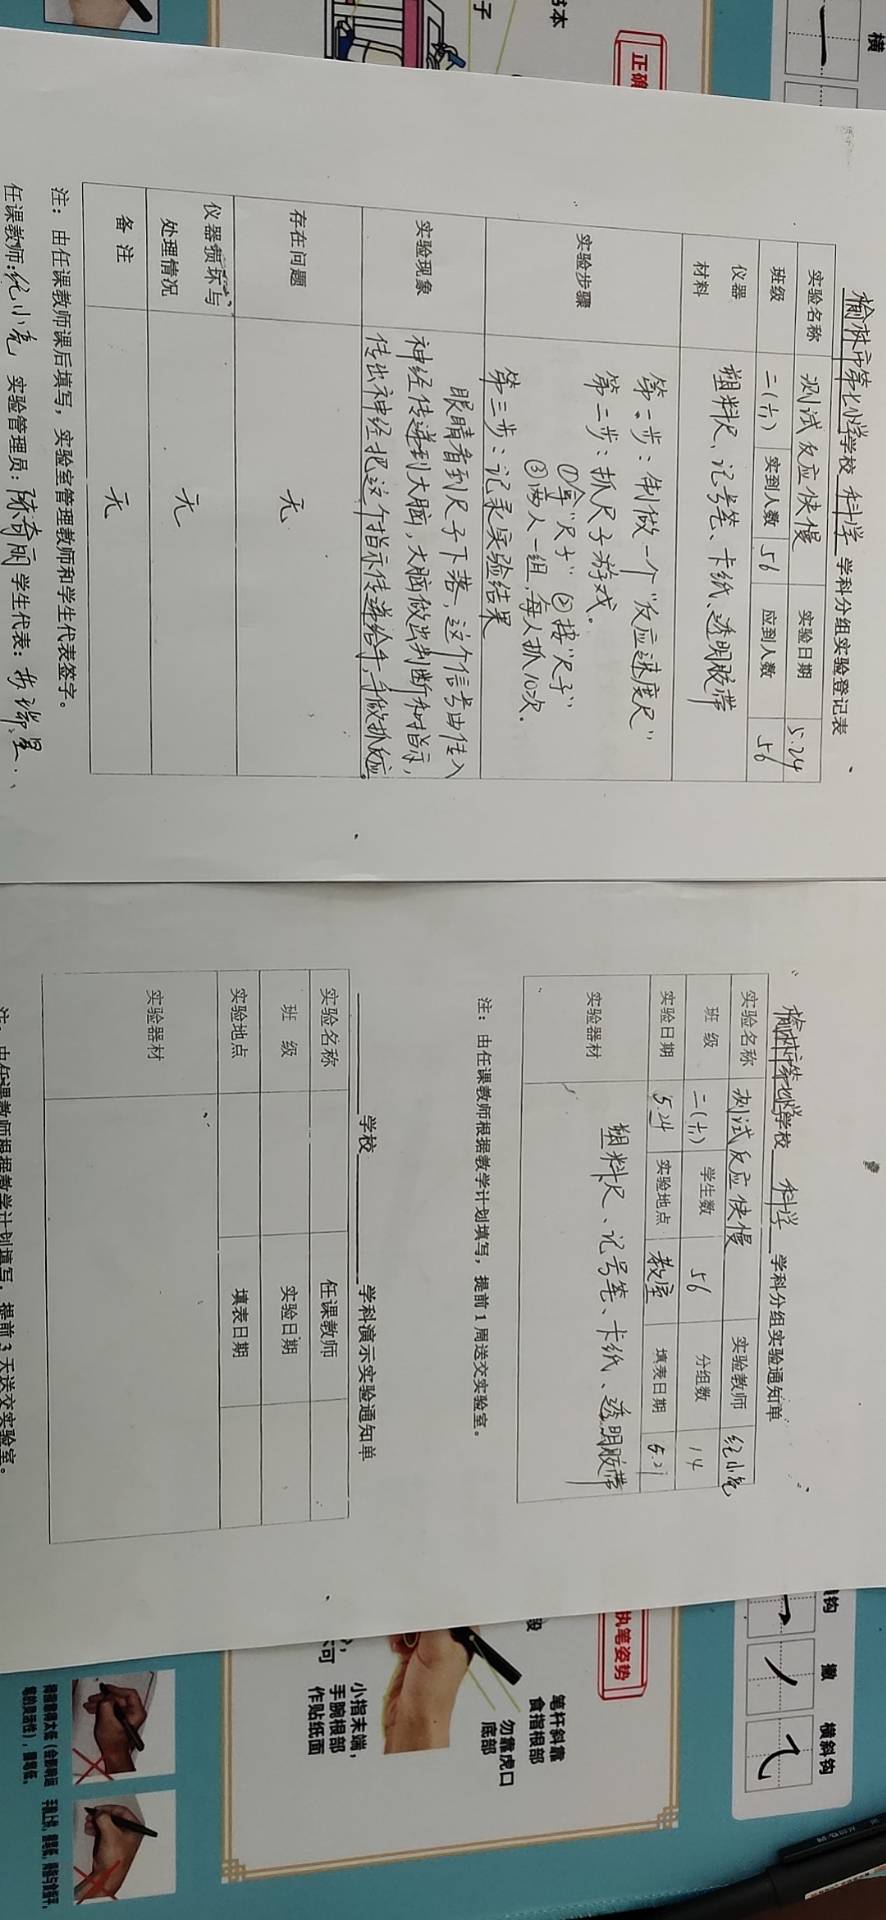 榆林市第七小学学校 科学 学科分组实验登记表
实验名称 测试反应快慢 实验日期 5.24
班级 二(六) 实到人数 56 应到人数 56
仪器材料 塑料尺、记号笔、卡纸、透明胶带
实验步骤
第一步：制做一个“反应速度尺”
第二步：抓尺子游戏。
①拿“尺子” ②接“尺子”
③两人一组，每人抓10次。
第三步：记录实验结果
实验现象
眼睛看到尺子下落，这个信号由传入
神经传递到大脑，大脑做出判断和指示，
传出神经把这个指示传递给手，手做抓反应。
存在问题 无
仪器损坏与处理情况 无
备注 无
注：由任课教师课后填写，实验室管理教师和学生代表签字。
任课教师：纪小亮 实验管理员： 学生代表：
榆林市第七小学学校 科学 学科分组实验通知单
实验名称 测试反应快慢 实验教师 纪小亮
班级 二(六) 学生数 56 分组数 14
实验日期 5.24 实验地点 教室 填表日期
实验器材 塑料尺、记号笔、卡纸、透明胶带
注：由任课教师根据教学计划填写，提前1周送交实验室。
学校 学科演示实验通知单
实验名称 任课教师
班级 实验日期
实验地点 填表日期
实验器材
注：由任课教师根据教学计划填写，提前3天送交实验室。
横
书本
子
正确
钩 撇 横斜钩
执笔姿势
段
笔杆斜靠
食指根部
勿靠虎口
底部
小指末端，
手腕根部
作贴纸面
不可